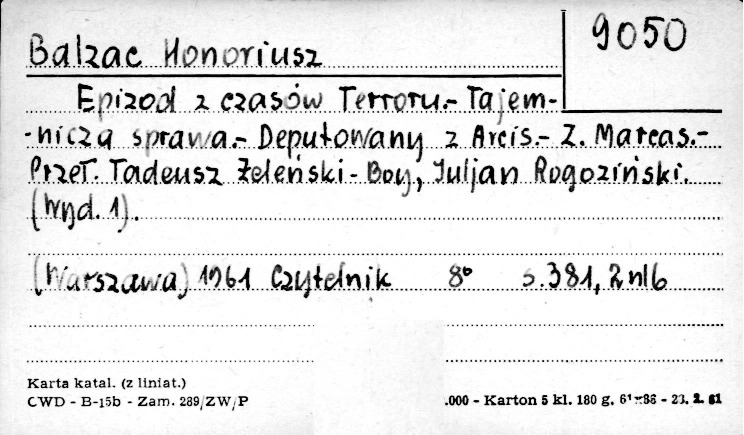 Balzac Honoriusz
9050
Epizod z czasów Terroru.- Tajem-
-nicza sprawa.- Deputowany z Arcis.- Z. Marcas.-
Przeł. Tadeusz Żeleński-Boy, Juljan Rogoziński.
(Wyd. 1).
(Warszawa) 1961 Czytelnik 8° s. 381, 2 nlb
Karta katal. (z liniat.)
CWD - B-15b - Zam. 289/ZW/P
.000 - Karton 5 kl. 180 g. 61x86 - 23. 2. 61